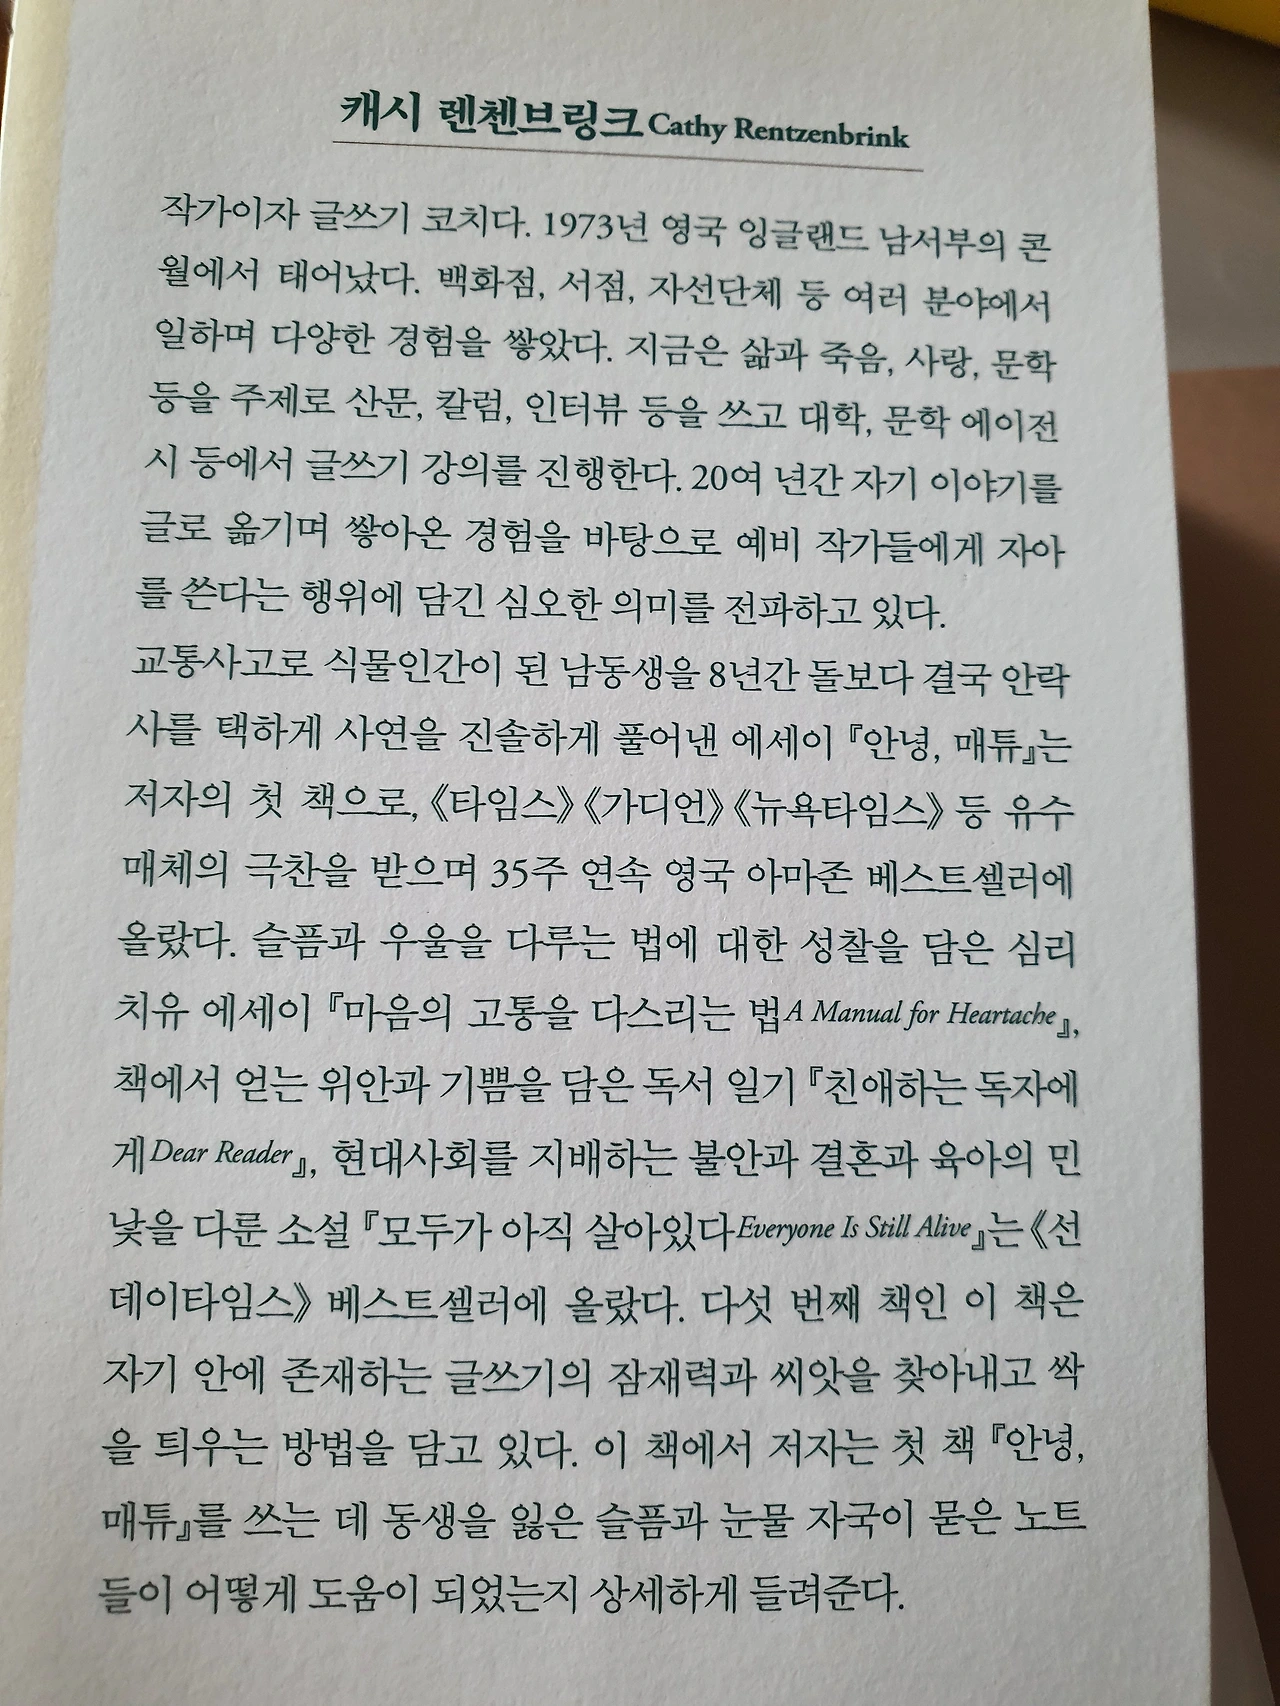 캐시 렌첸브링크 Cathy Rentzenbrink
작가이자 글쓰기 코치다. 1973년 영국 잉글랜드 남서부의 콘
월에서 태어났다. 백화점, 서점, 자선단체 등 여러 분야에서
일하며 다양한 경험을 쌓았다. 지금은 삶과 죽음, 사랑, 문학
등을 주제로 산문, 칼럼, 인터뷰 등을 쓰고 대학, 문학 에이전
시 등에서 글쓰기 강의를 진행한다. 20여 년간 자기 이야기를
글로 옮기며 쌓아온 경험을 바탕으로 예비 작가들에게 자아
를 쓴다는 행위에 담긴 심오한 의미를 전파하고 있다.
교통사고로 식물인간이 된 남동생을 8년간 돌보다 결국 안락
사를 택하게 사연을 진솔하게 풀어낸 에세이 『안녕, 매튜』는
저자의 첫 책으로, 《타임스》 《가디언》 《뉴욕타임스》 등 유수
매체의 극찬을 받으며 35주 연속 영국 아마존 베스트셀러에
올랐다. 슬픔과 우울을 다루는 법에 대한 성찰을 담은 심리
치유 에세이 『마음의 고통을 다스리는 법 A Manual for Heartache』,
책에서 얻는 위안과 기쁨을 담은 독서 일기 『친애하는 독자에
게 Dear Reader』, 현대사회를 지배하는 불안과 결혼과 육아의 민
낯을 다룬 소설 『모두가 아직 살아있다 Everyone Is Still Alive』는 《선
데이타임스》 베스트셀러에 올랐다. 다섯 번째 책인 이 책은
자기 안에 존재하는 글쓰기의 잠재력과 씨앗을 찾아내고 싹
을 틔우는 방법을 담고 있다. 이 책에서 저자는 첫 책 『안녕,
매튜』를 쓰는 데 동생을 잃은 슬픔과 눈물 자국이 묻은 노트
들이 어떻게 도움이 되었는지 상세하게 들려준다.